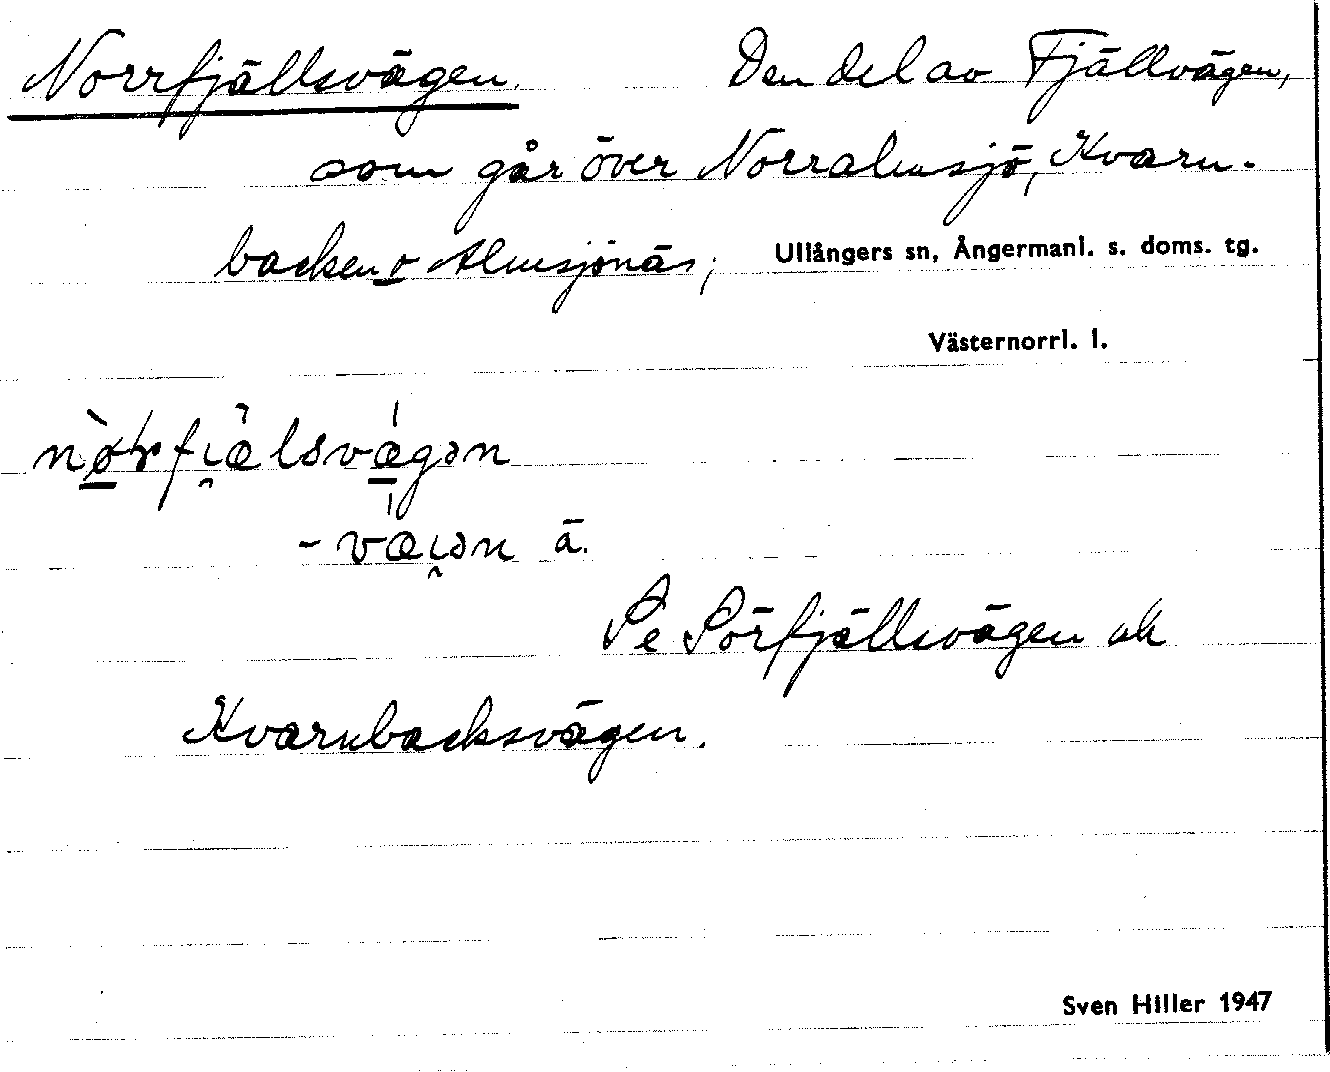 Norrfjällsvägen. Den del av Fjällvägen,
som går över Norralmsjö, Kvarn-
backen o Almsjönäs; Ullångers sn, Ångermanl. s. doms. tg.
Västernorrl. l.
-væ̀i̯ən ä.
Se Sörfjällsvägen ock
Kvarnbacksvägen.
Sven Hiller 1947